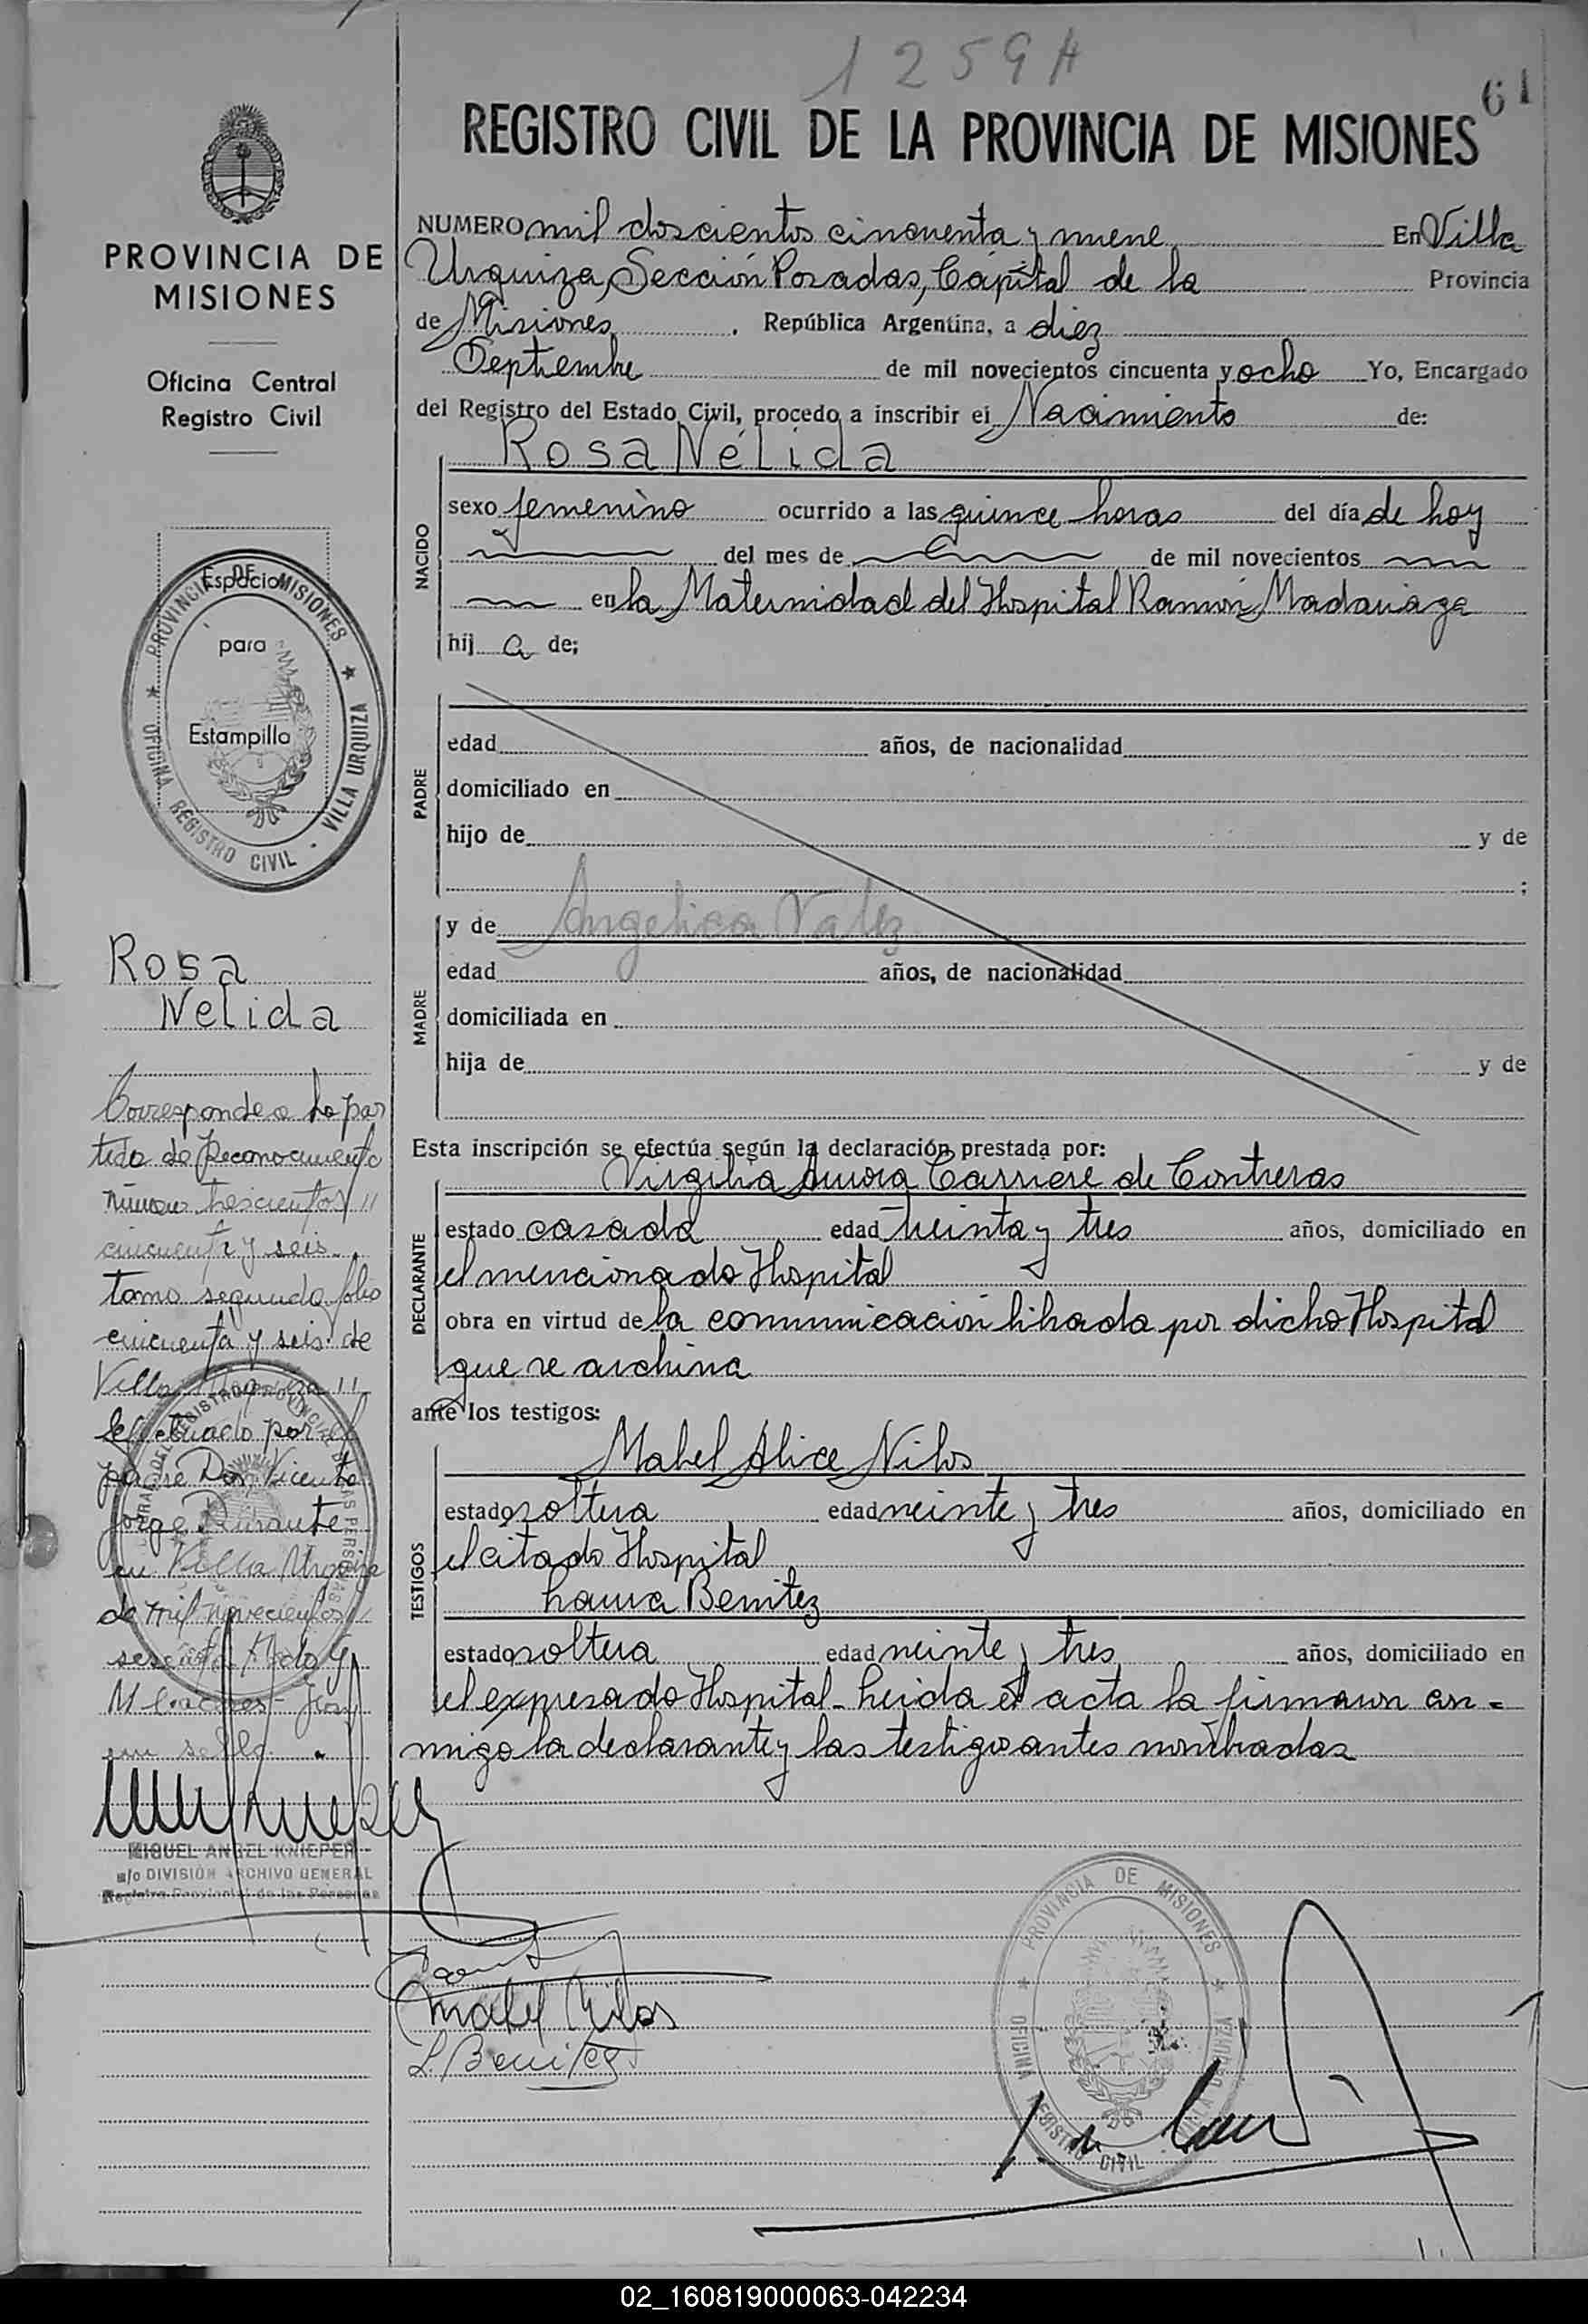 1259A
61
REGISTRO CIVIL DE LA PROVINCIA DE MISIONES
PROVINCIA DE
MISIONES
Oficina Central
Registro Civil
Espacio
para
Estampilla
PROVINCIA DE MISIONES
OFICINA REGISTRO CIVIL - VILLA URQUIZA
Rosa
Nelida
Corresponde a la par
tida de Reconocimiento
número trescientos
cincuenta y seis
tomo segundo folio
cincuenta y seis de
Villa Urquiza
Efectuado por el
padre Don Vicente
Jorge Durante
en Villa Urquiza
de mil novecientos
sesenta
MIGUEL ANGEL KNIEPER
a/c DIVISIÓN ARCHIVO GENERAL
Registro Provincial de las Personas
NUMERO mil doscientos cincuenta y nueve En Villa
Urquiza, Sección Posadas, Capital de la Provincia
de Misiones. República Argentina, a diez
Septiembre de mil novecientos cincuenta y ocho Yo, Encargado
del Registro del Estado Civil, procedo a inscribir el Nacimiento de:
Rosa Nélida
NACIDO
sexo femenino ocurrido a las quince horas del día de hoy
del mes de de mil novecientos
en la Maternidad del Hospital Ramón Madariaga
hij a de;
PADRE
edad años, de nacionalidad
domiciliado en
hijo de y de
;
MADRE
y de Angelica
edad años, de nacionalidad
domiciliada en
hija de y de
Esta inscripción se efectúa según la declaración prestada por:
DECLARANTE
Virgilia Aurora Carriere de Contreras
estado casada edad treinta y tres años, domiciliado en
el mencionado Hospital
obra en virtud de la comunicación librada por dicho Hospital
que se archiva
ante los testigos:
TESTIGOS
Mabel Alice Nilos
estado soltera edad veinte y tres años, domiciliado en
el citado Hospital
Laura Benitez
estado soltera edad veinte y tres años, domiciliado en
el expresado Hospital - Leida el acta la firmaron con-
migo la declarante y las testigos antes nombradas
Mabel Nilos
L. Benitez
PROVINCIA DE MISIONES
OFICINA REGISTRO CIVIL VILLA URQUIZA
02_160819000063-042234